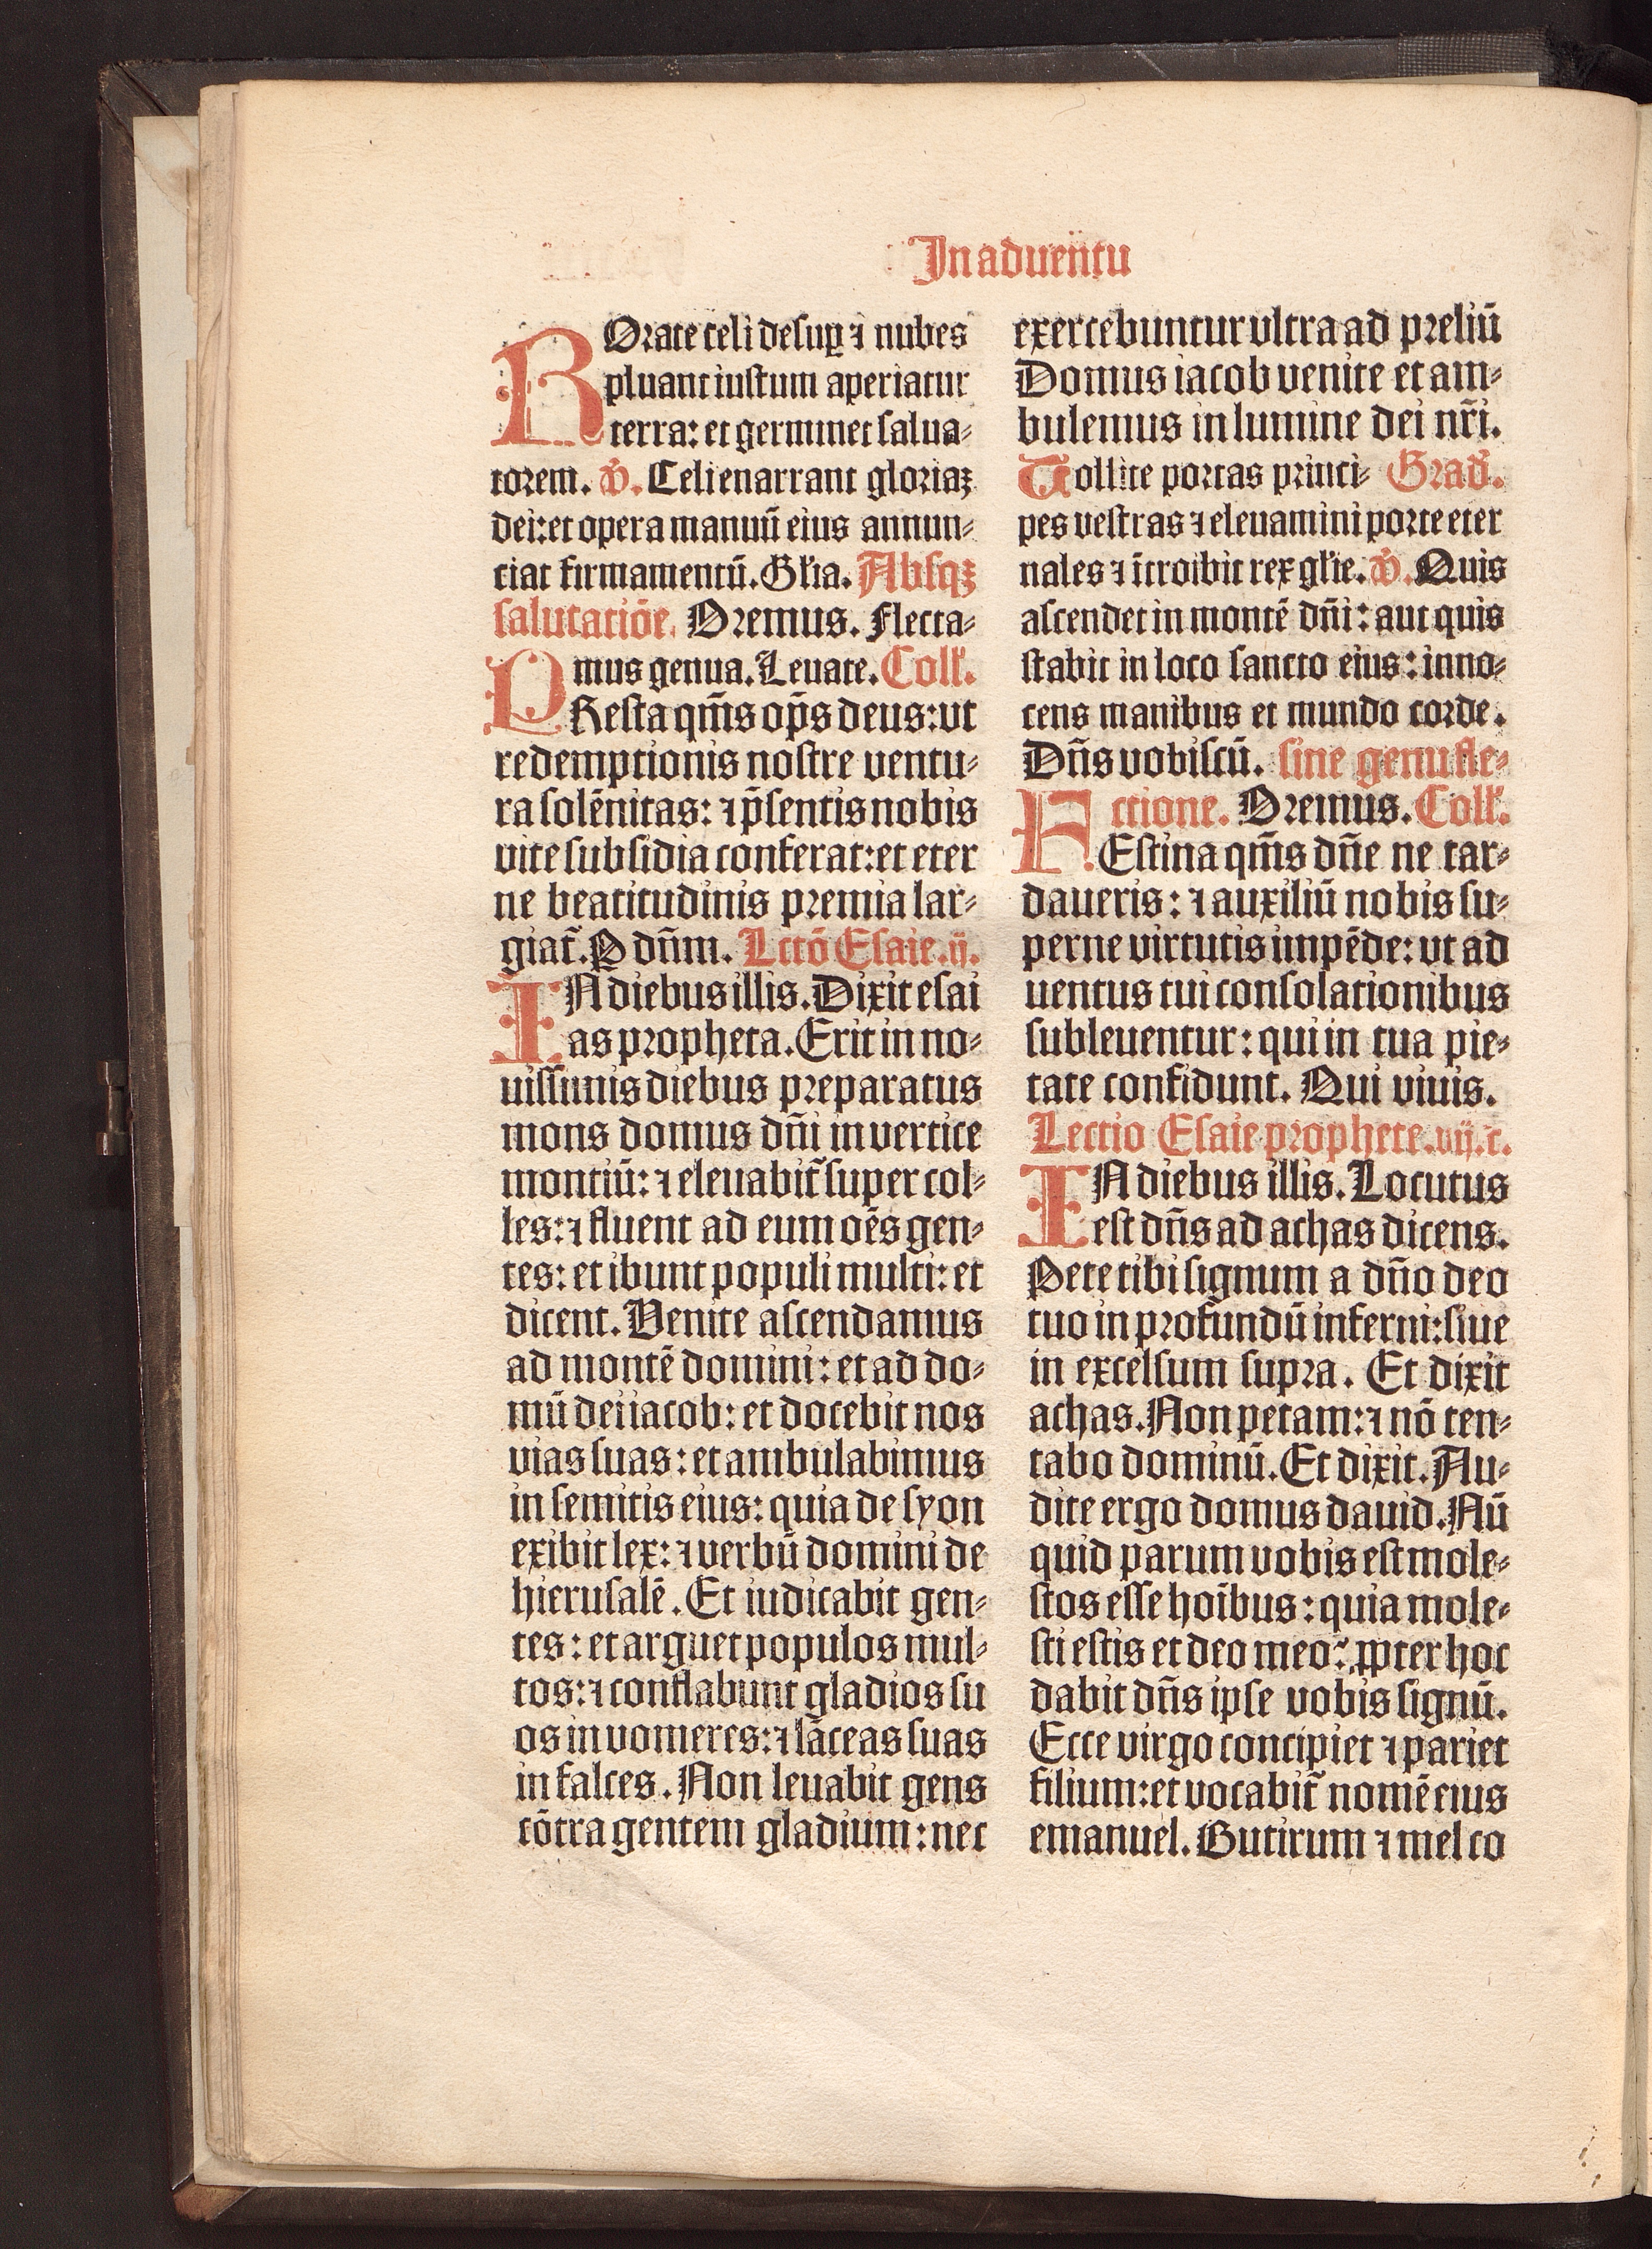 In aduentu
ROrate celi desuꝑ ⁊ nubes
pluant iustum aperiatur
terra: et germinet salua⸗
torem. ℣. Celi enarrant gloriaꝫ
dei: et opera manuū eius annun⸗
ciat firmamentū. Gl'ia. Absqꝫ
salutatiōe. Oremus. Flecta⸗
mus genua. Leuate. Coll'.
PResta qm̄s op̄s deus: vt
redemptionis nostre ventu⸗
ra solēnitas: ⁊ p̄sentis nobis
vite subsidia conferat: et eter
ne beatitudinis premia lar⸗
giat̄. P dn̄m. Lctō Esaie .ij.
IN diebus illis. Dixit esai
as propheta. Erit in no⸗
uissimis diebus preparatus
mons domus dn̄i in vertice
montiū: ⁊ eleuabit̄ super col⸗
les: ⁊ fluent ad eum oēs gen⸗
tes: et ibunt populi multi: et
dicent. Venite ascendamus
ad montē domini: et ad do⸗
mū dei iacob: et docebit nos
vias suas: et ambulabimus
in semitis eius: quia de syon
exibit lex: ⁊ verbū domini de
hierusalē. Et iudicabit gen⸗
tes: et arguet populos mul⸗
tos: ⁊ conflabunt gladios su
os in vomeres: ⁊ lāceas suas
in falces. Non leuabit gens
cōtra gentem gladium: nec
exercebuntur vltra ad preliū
Domus iacob venite et am⸗
bulemus in lumine dei nr̄i.
Tollite portas princi⸗ Grad'.
pes vestras ⁊ eleuamini porte eter
nales ⁊ ītroibit rex gl'ie. ℣. Quis
ascendet in montē dn̄i: aut quis
stabit in loco sancto eius: inno⸗
cens manibus et mundo corde.
Dn̄s vobiscū. sine genufle⸗
ctione. Oremus. Coll'.
FEstina qm̄s dn̄e ne tar⸗
daueris: ⁊ auxiliū nobis su⸗
perne virtutis impēde: vt ad
uentus tui consolationibus
subleuentur: qui in tua pie⸗
tate confidunt. Qui viuis.
Lectio Esaie prophete. vij. c.
IN diebus illis. Locutus
est dn̄s ad achas dicens.
Pete tibi signum a dn̄o deo
tuo in profundū inferni: siue
in excelsum supra. Et dixit
achas. Non petam: ⁊ nō ten⸗
tabo dominū. Et dixit. Au⸗
dite ergo domus dauid. Nū
quid parum vobis est mole⸗
stos esse hoībus: quia mole⸗
sti estis et deo meo? ꝓpter hoc
dabit dn̄s ipse vobis signū.
Ecce virgo concipiet ⁊ pariet
filium: et vocabit̄ nomē eius
emanuel. Butirum ⁊ mel co